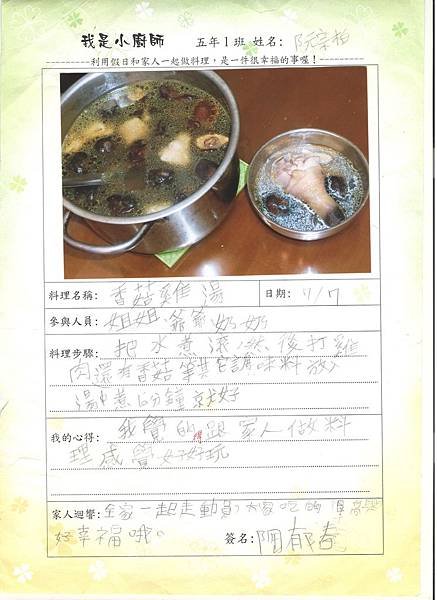 我是小廚師 五年1班 姓名: 阮宗柏
利用假日和家人一起做料理,是一件很幸福的事喔!
料理名稱: 香菇雞湯 日期: 11/7
參與人員: 姐姐 爺爺 奶奶
料理步驟: 把水煮滾,然後打雞
肉還有香菇等其它調味料放入
湯中煮10分鐘就好
我的心得: 我覺的得跟家人做料
理感覺好好玩
家人迴響: 全家一起走動員,大家吃的
好幸福哦。 簽名: 陶郁春